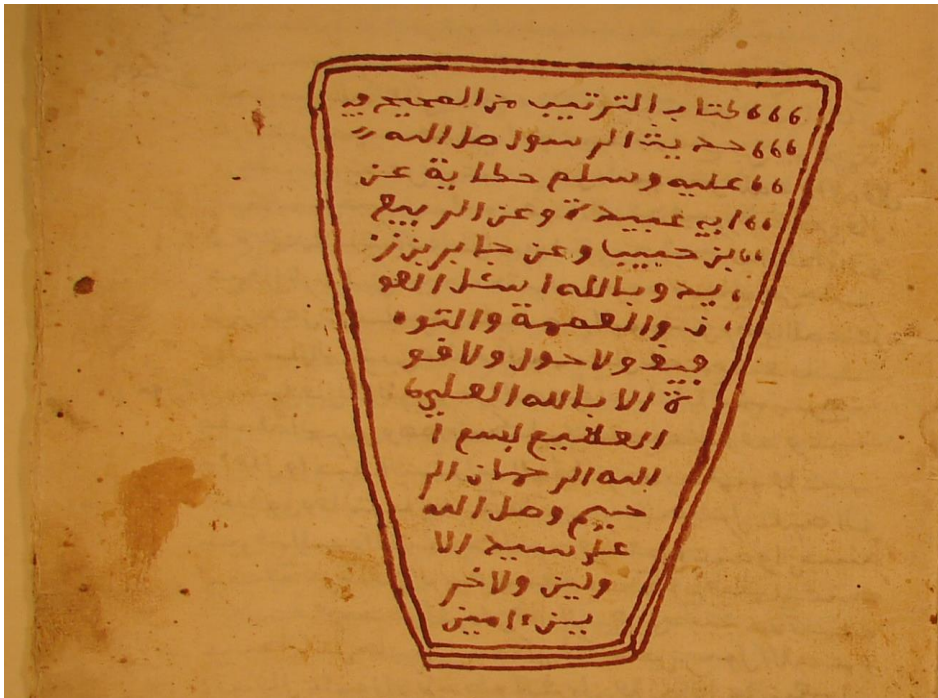 كتاب الترتيب من الصحيح في
حديث الرسول صل الله
عليه وسلم حكاية عن
ابي عبيدة وعن الربيع
بن حبيب وعن جابر بن ز
يد وبالله اسئل العو
ن والعصمة والتو
فيق ولا حول ولا قو
ة الا بالله العلي
العظيم بسم ا
الله الرحمان الر
حيم وصل الله
على سيد الا
ولين ولاخر
ين ءامين